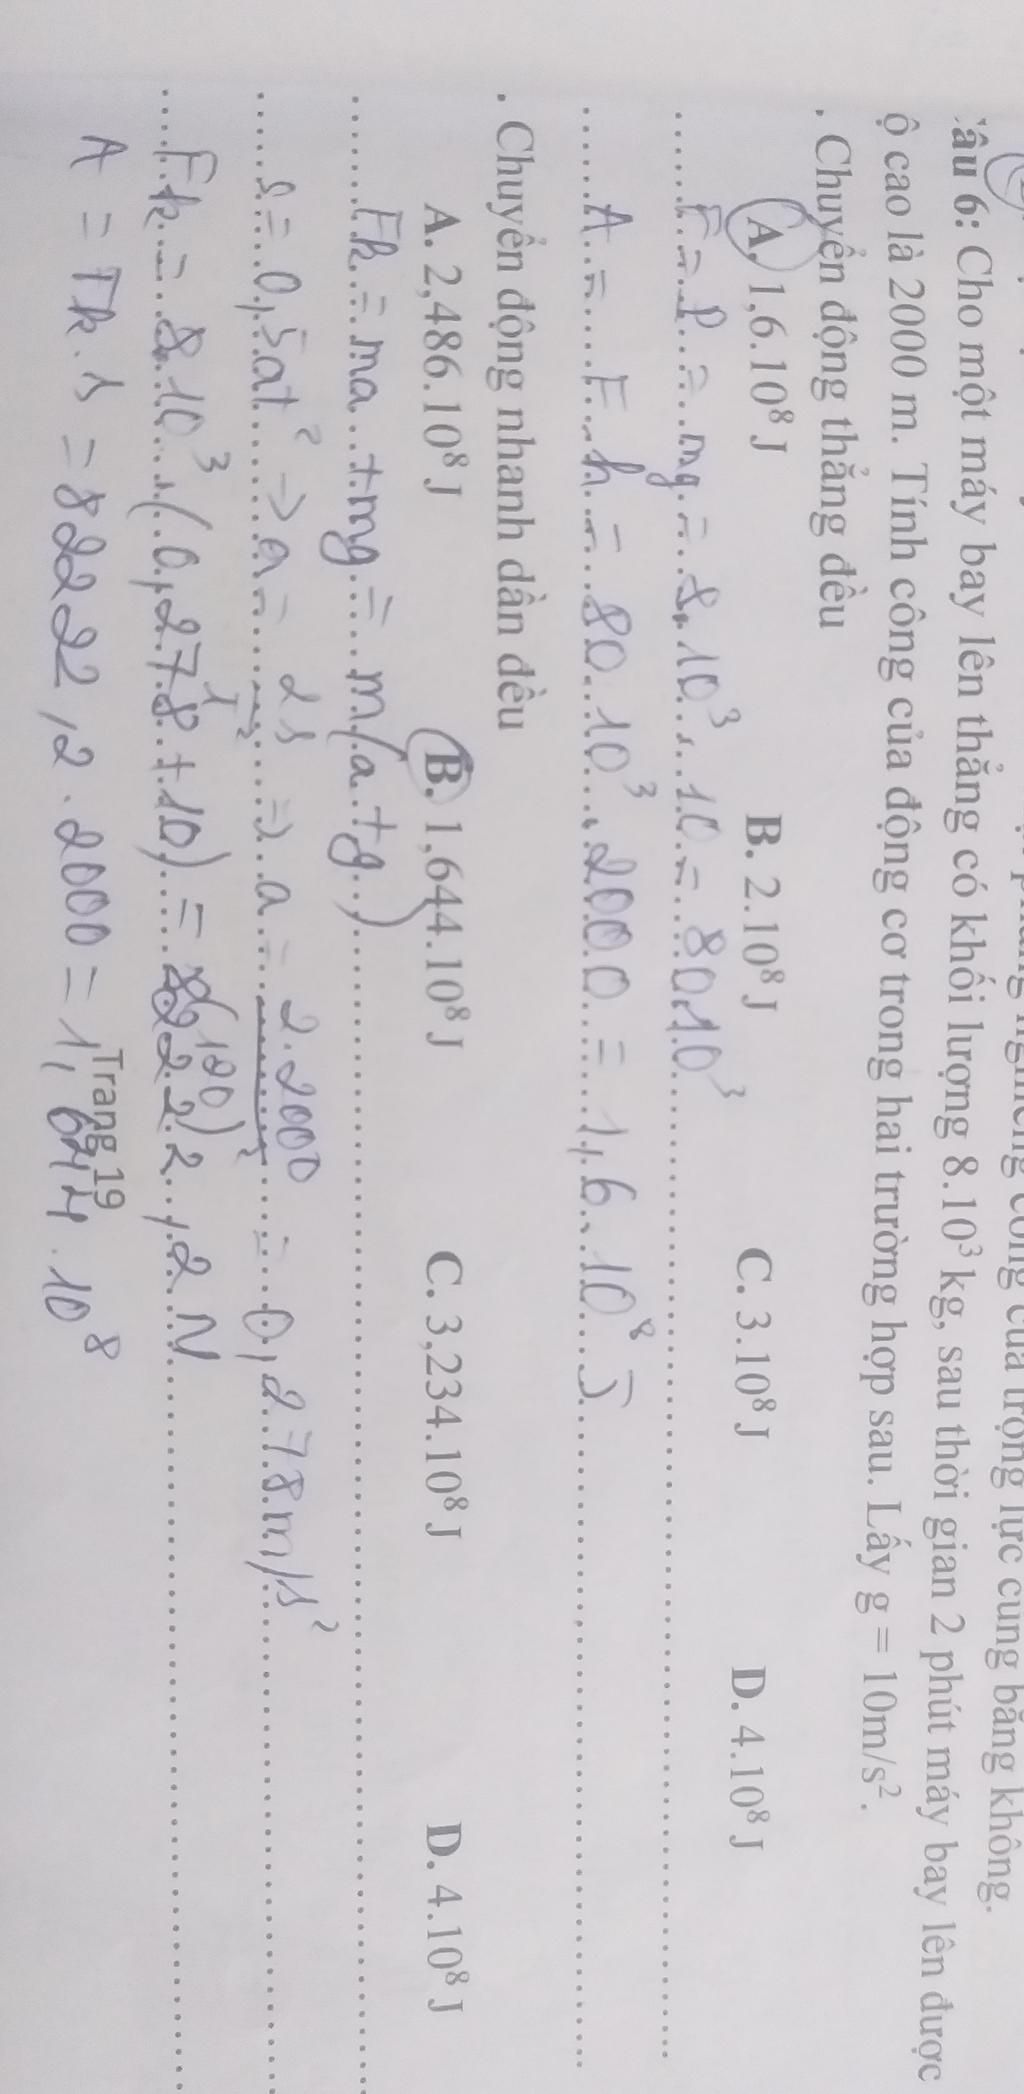 phẳng nghiêng công của trọng lực cũng bằng không.
Câu 6: Cho một máy bay lên thẳng có khối lượng 8.10³ kg, sau thời gian 2 phút máy bay lên được
ộ cao là 2000 m. Tính công của động cơ trong hai trường hợp sau. Lấy g = 10m/s².
. Chuyển động thẳng đều
A. 1,6.10⁸ J B. 2.10⁸ J C. 3.10⁸ J D. 4.10⁸ J
F = P = mg = 8.10³ . 10 = 80.10³
A = F.h = 80.10³ . 2000 = 1,6.10⁸ J
. Chuyển động nhanh dần đều
A. 2,486.10⁸ J B. 1,644.10⁸ J C. 3,234.10⁸ J D. 4.10⁸ J
Fk = ma + mg = m(a+g)
s = 0,5at² => a = 2s/t² => a = 2.2000/(120)² = 0,278 m/s²
Fk = 8.10³ . (0,278 + 10) = 82222,2 N
A = Fk . s = 82222,2 . 2000 = 1,644.10⁸
Trang 19